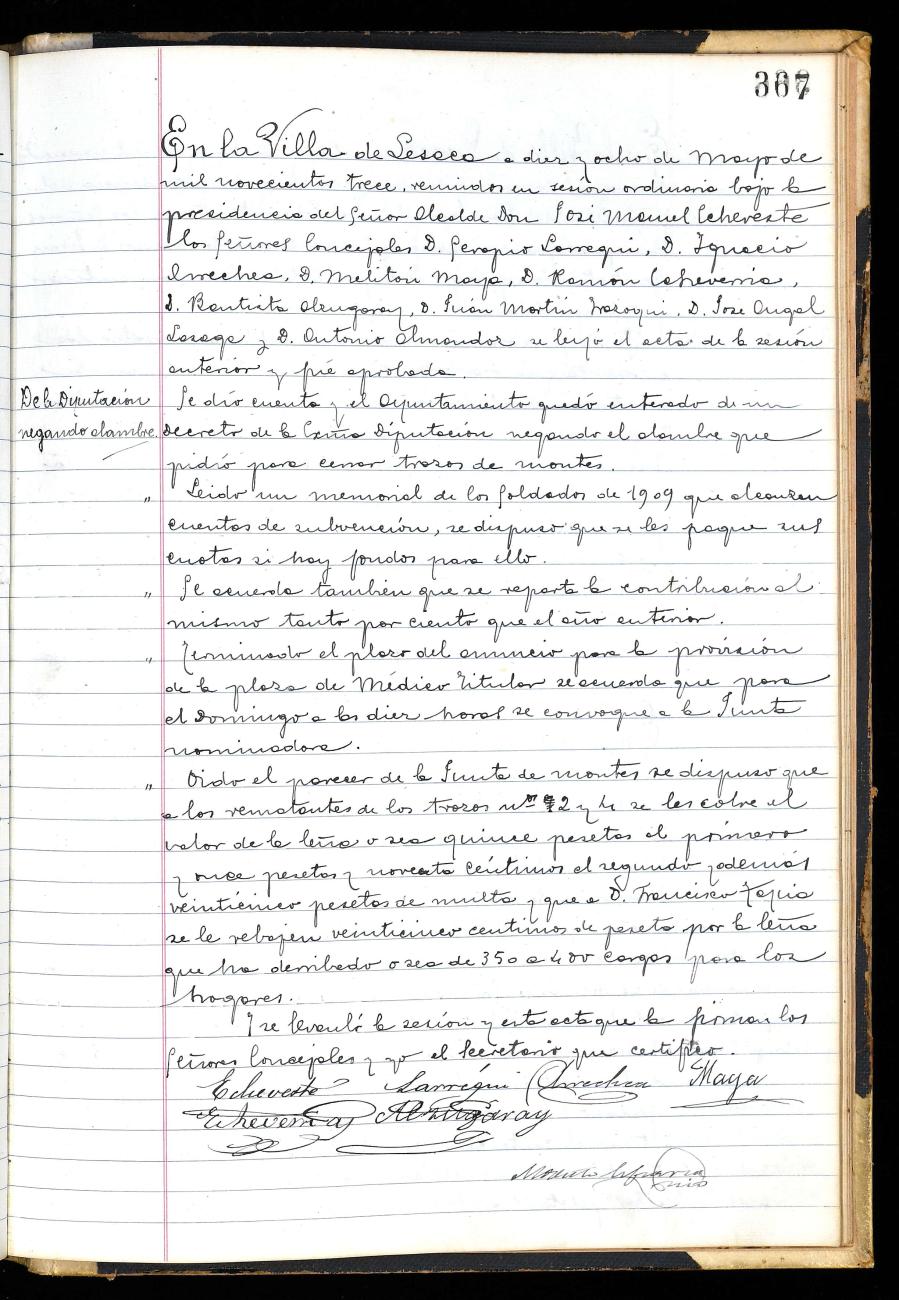 367
En la Villa de Lesaca a diez y ocho de Mayo de
mil novecientos trece, reunidos en sesión ordinaria bajo la
presidencia del Señor Alcalde Don José Manuel Echeveste
los Señores Concejales D. Serapio Larregui, D. Ignacio
Arrechea, D. Melitón Maya, D. Ramón Echeverria,
D. Bautista Alzugaray, D. Juán Martin Irazoqui, D. José Angel
Lasaga y D. Antonio Almandoz se leyó el acta de la sesión
anterior y fué aprobada.
De la Diputación
negando alambre.
Se dió cuenta y el Ayuntamiento quedó enterado de un
decreto de la Exma Diputación negando el alambre que
pidió para cerrar trozos de montes.
" Leido un memorial de los Soldados de 1909 que alcanzan
cuentas de subvención, se dispuso que se les pague sus
cuotas si hay fondos para ello.
" Se acuerda también que se reparta la contribución al
mismo tanto por ciento que el año anterior.
" Terminado el plazo del anuncio para la provisión
de la plaza de Médico Titular se acuerda que para
el Domingo a las diez horas se convoque a la Junta
nominadora.
" Oido el parecer de la Junta de montes se dispuso que
a los rematantes de los trozos nos 2 y 4 se les cobre el
valor de la leña o sea quince pesetas al primero
y once pesetas y noventa céntimos al segundo y además
veinticinco pesetas de multa y que a D. Francisco Tapia
se le rebajen veinticinco centimos de peseta por la leña
que ha derribado o sea de 350 a 400 cargas para los
hogares.
Y se levantó la sesión y esta acta que la firman los
Señores Concejales y yo el Secretario que certifico.
Echeveste Larregui Arrechea Maya
Echeverria Alzugaray